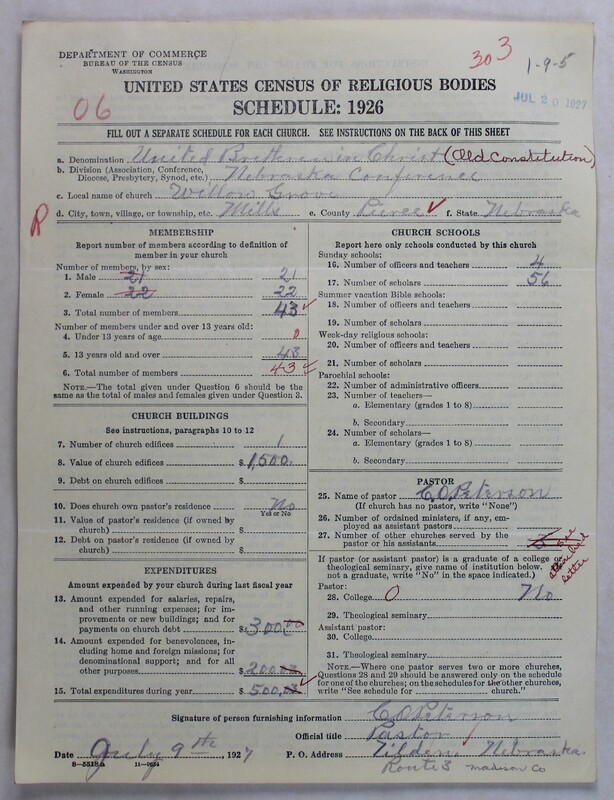 DEPARTMENT OF COMMERCE
BUREAU OF THE CENSUS
WASHINGTON
303
1-9-5
UNITED STATES CENSUS OF RELIGIOUS BODIES
SCHEDULE: 1926
06
JUL 20 1927
FILL OUT A SEPARATE SCHEDULE FOR EACH CHURCH. SEE INSTRUCTIONS ON THE BACK OF THIS SHEET
a. Denomination United Brethren in Christ (Old Constitution)
b. Division (Association, Conference, Diocese, Presbytery, Synod, etc.) Nebraska Conference
c. Local name of church Willow Grove
R d. City, town, village, or township, etc. Mills e. County Pierce f. State Nebraska
MEMBERSHIP
Report number of members according to definition of
member in your church
Number of members, by sex:
1. Male 21 21
2. Female 22 22
3. Total number of members 43
Number of members under and over 13 years old:
4. Under 13 years of age 0
5. 13 years old and over 43
6. Total number of members 43
NOTE.—The total given under Question 6 should be the
same as the total of males and females given under Question 3.
CHURCH BUILDINGS
See instructions, paragraphs 10 to 12
7. Number of church edifices 1
8. Value of church edifices $ 1,500.
9. Debt on church edifices $
10. Does church own pastor's residence No
Yes or No
11. Value of pastor's residence (if owned by
church) $
12. Debt on pastor's residence (if owned by
church) $
EXPENDITURES
Amount expended by your church during last fiscal year
13. Amount expended for salaries, repairs,
and other running expenses; for im-
provements or new buildings; and for
payments on church debt $ 300.00
14. Amount expended for benevolences, in-
cluding home and foreign missions; for
denominational support; and for all
other purposes $ 200.03
15. Total expenditures during year $ 500.03
CHURCH SCHOOLS
Report here only schools conducted by this church
Sunday schools:
16. Number of officers and teachers 4
17. Number of scholars 56
Summer vacation Bible schools:
18. Number of officers and teachers
19. Number of scholars
Week-day religious schools:
20. Number of officers and teachers
21. Number of scholars
Parochial schools:
22. Number of administrative officers
23. Number of teachers—
a. Elementary (grades 1 to 8)
b. Secondary
24. Number of scholars—
a. Elementary (grades 1 to 8)
b. Secondary
PASTOR
25. Name of pastor C.O. Peterson
(If church has no pastor, write "None")
26. Number of ordained ministers, if any, em-
ployed as assistant pastors
27. Number of other churches served by the
pastor or his assistants
see attached letter
If pastor (or assistant pastor) is a graduate of a college or
theological seminary, give name of institution below. (If
not a graduate, write "No" in the space indicated.)
Pastor:
28. College 0 No
29. Theological seminary
Assistant pastor:
30. College
31. Theological seminary
NOTE.—Where one pastor serves two or more churches,
Questions 28 and 29 should be answered only on the schedule
for one of the churches; on the schedules for the other churches,
write "See schedule for church."
Signature of person furnishing information C O Peterson
Official title Pastor
Date July 9th, 1927 P. O. Address Tilden Nebraska
8—5518a 11—9654
Route 3 Madison Co